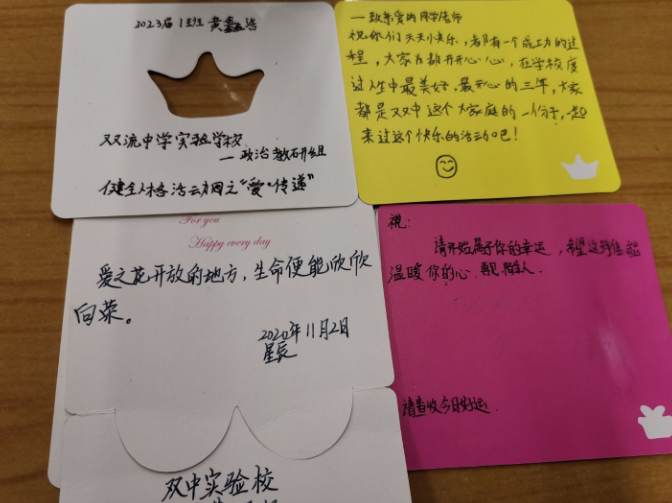 2023届1班 黄鑫浩
双流中学实验学校
—政治教研组
健全人格活动周之“爱·传递”
一致亲爱的同学老师
祝你们天天快乐,都有一个成功的过
程,大家都开开心心,在学校度
过人生中最美好、最开心的三年,大家
都是双中这个大家庭的一份子,一起
来过这个快乐的活动吧!
For you
Happy every day
爱之花开放的地方,生命便能欣欣
向荣。
2020年11月2日
星辰
祝:
请开始属于你的幸运,希望这封信能
温暖你的心。
请查收今日好运.
双中实验校